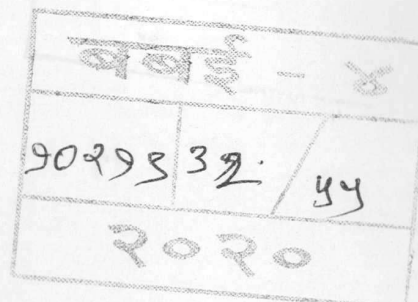 बबई - ४
१०२१३ ३२ / ५५
२०२०